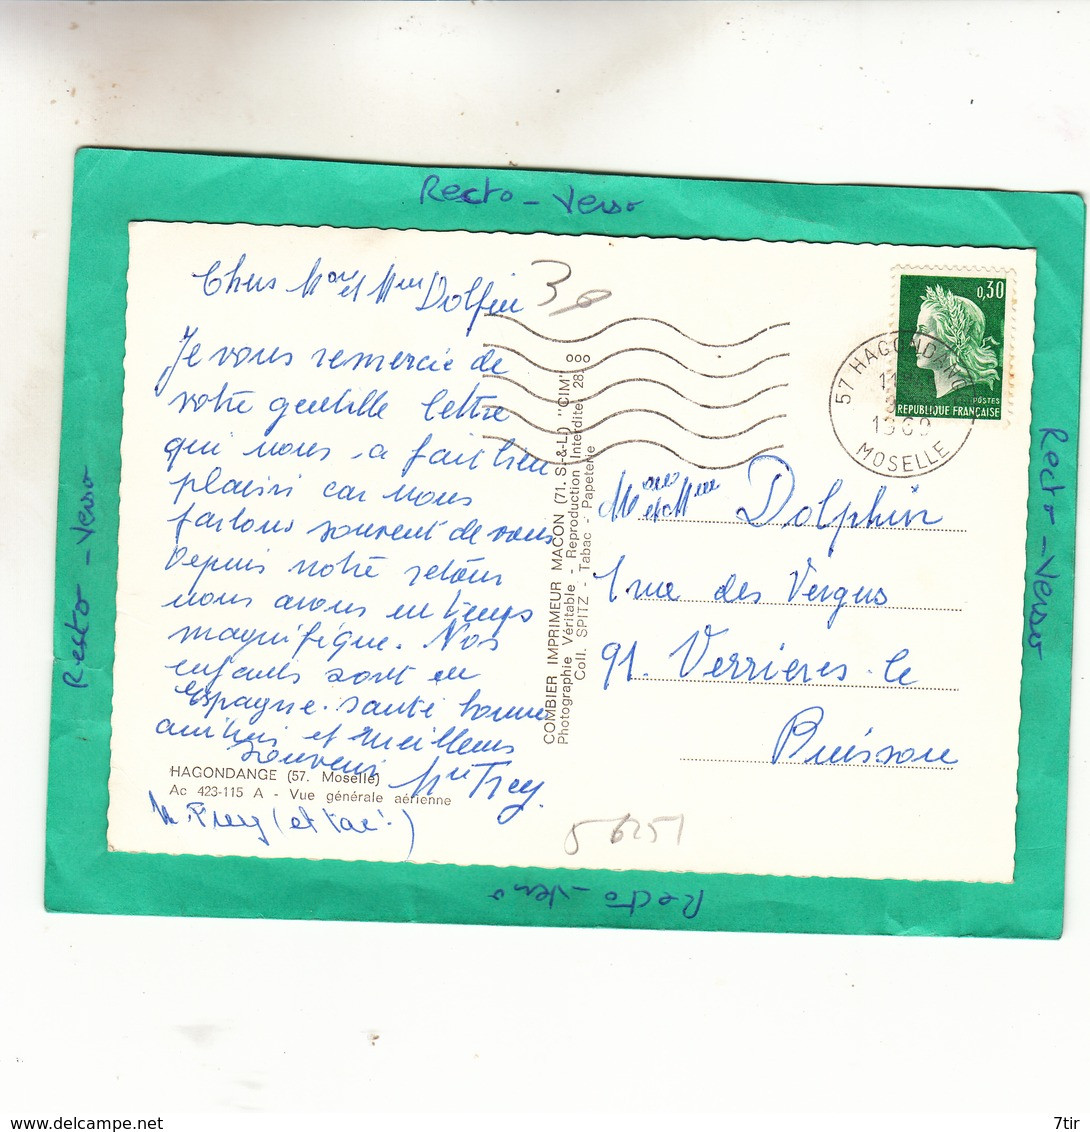 Recto - Verso
Chers Mr et Mme Dolfin
30
Je vous remercie de
votre gentille lettre
qui nous a fait bien
plaisir car nous
parlons souvent de vous
Depuis notre retour
nous avons eu temps
magnifique. Nos
enfants sont en
Espagne. santé bonne
amitiés et meilleurs
souvenirs
Mme Frey.
HAGONDANGE (57. Moselle)
Ac 423-115 A - Vue générale aérienne
M. Frey (et
COMBIER IMPRIMEUR MACON (71. S.-&-L.) "CIM"
Photographie Véritable - Reproduction Interdite 28.
Coll. SPITZ - Tabac - Papeterie
0,30
POSTES
REPUBLIQUE FRANÇAISE
57 HAGONDANGE
1969
MOSELLE
Mr et Mme Dolphin
1 rue des Vergers
91. Verrieres. le
Buisson
56251
Recto - Verso
Recto - Verso
Recto - Verso
www.delcampe.net
7tir